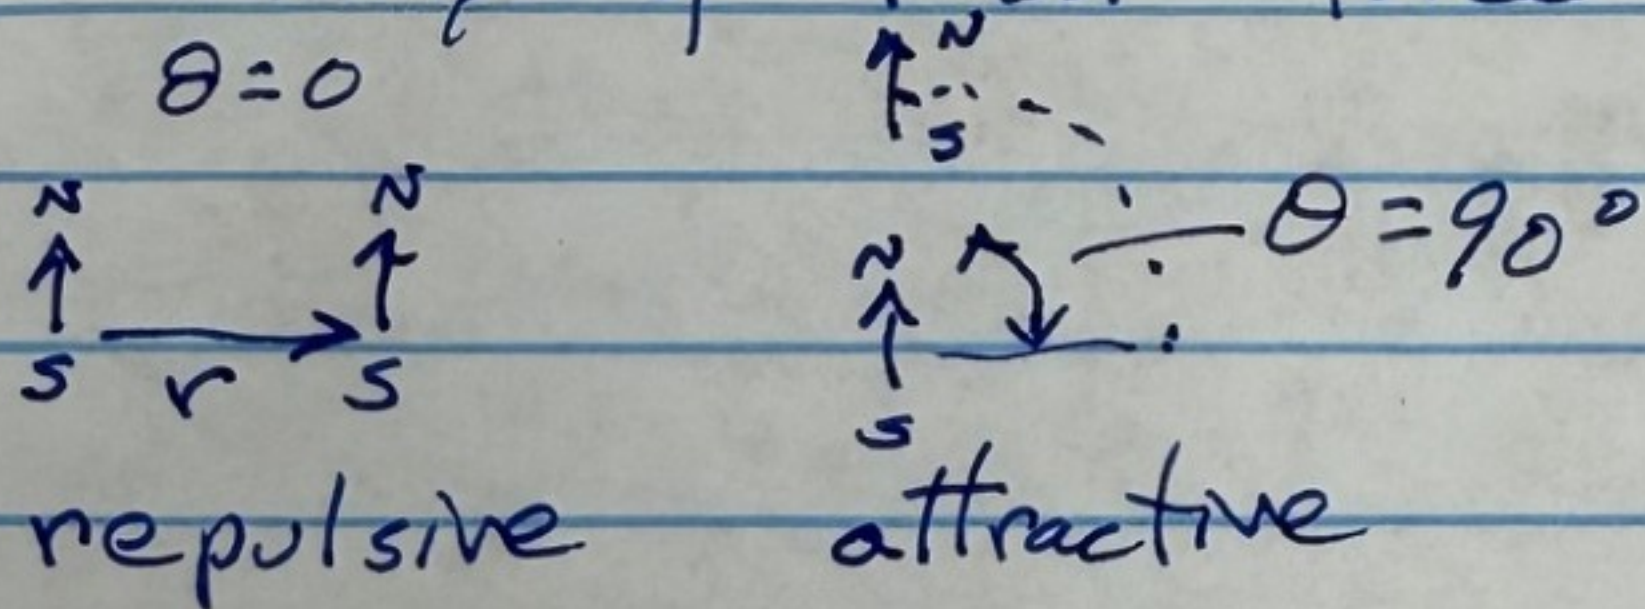 θ = 0
N N
S r S
repulsive
N
S
θ = 90°
N
S
attractive